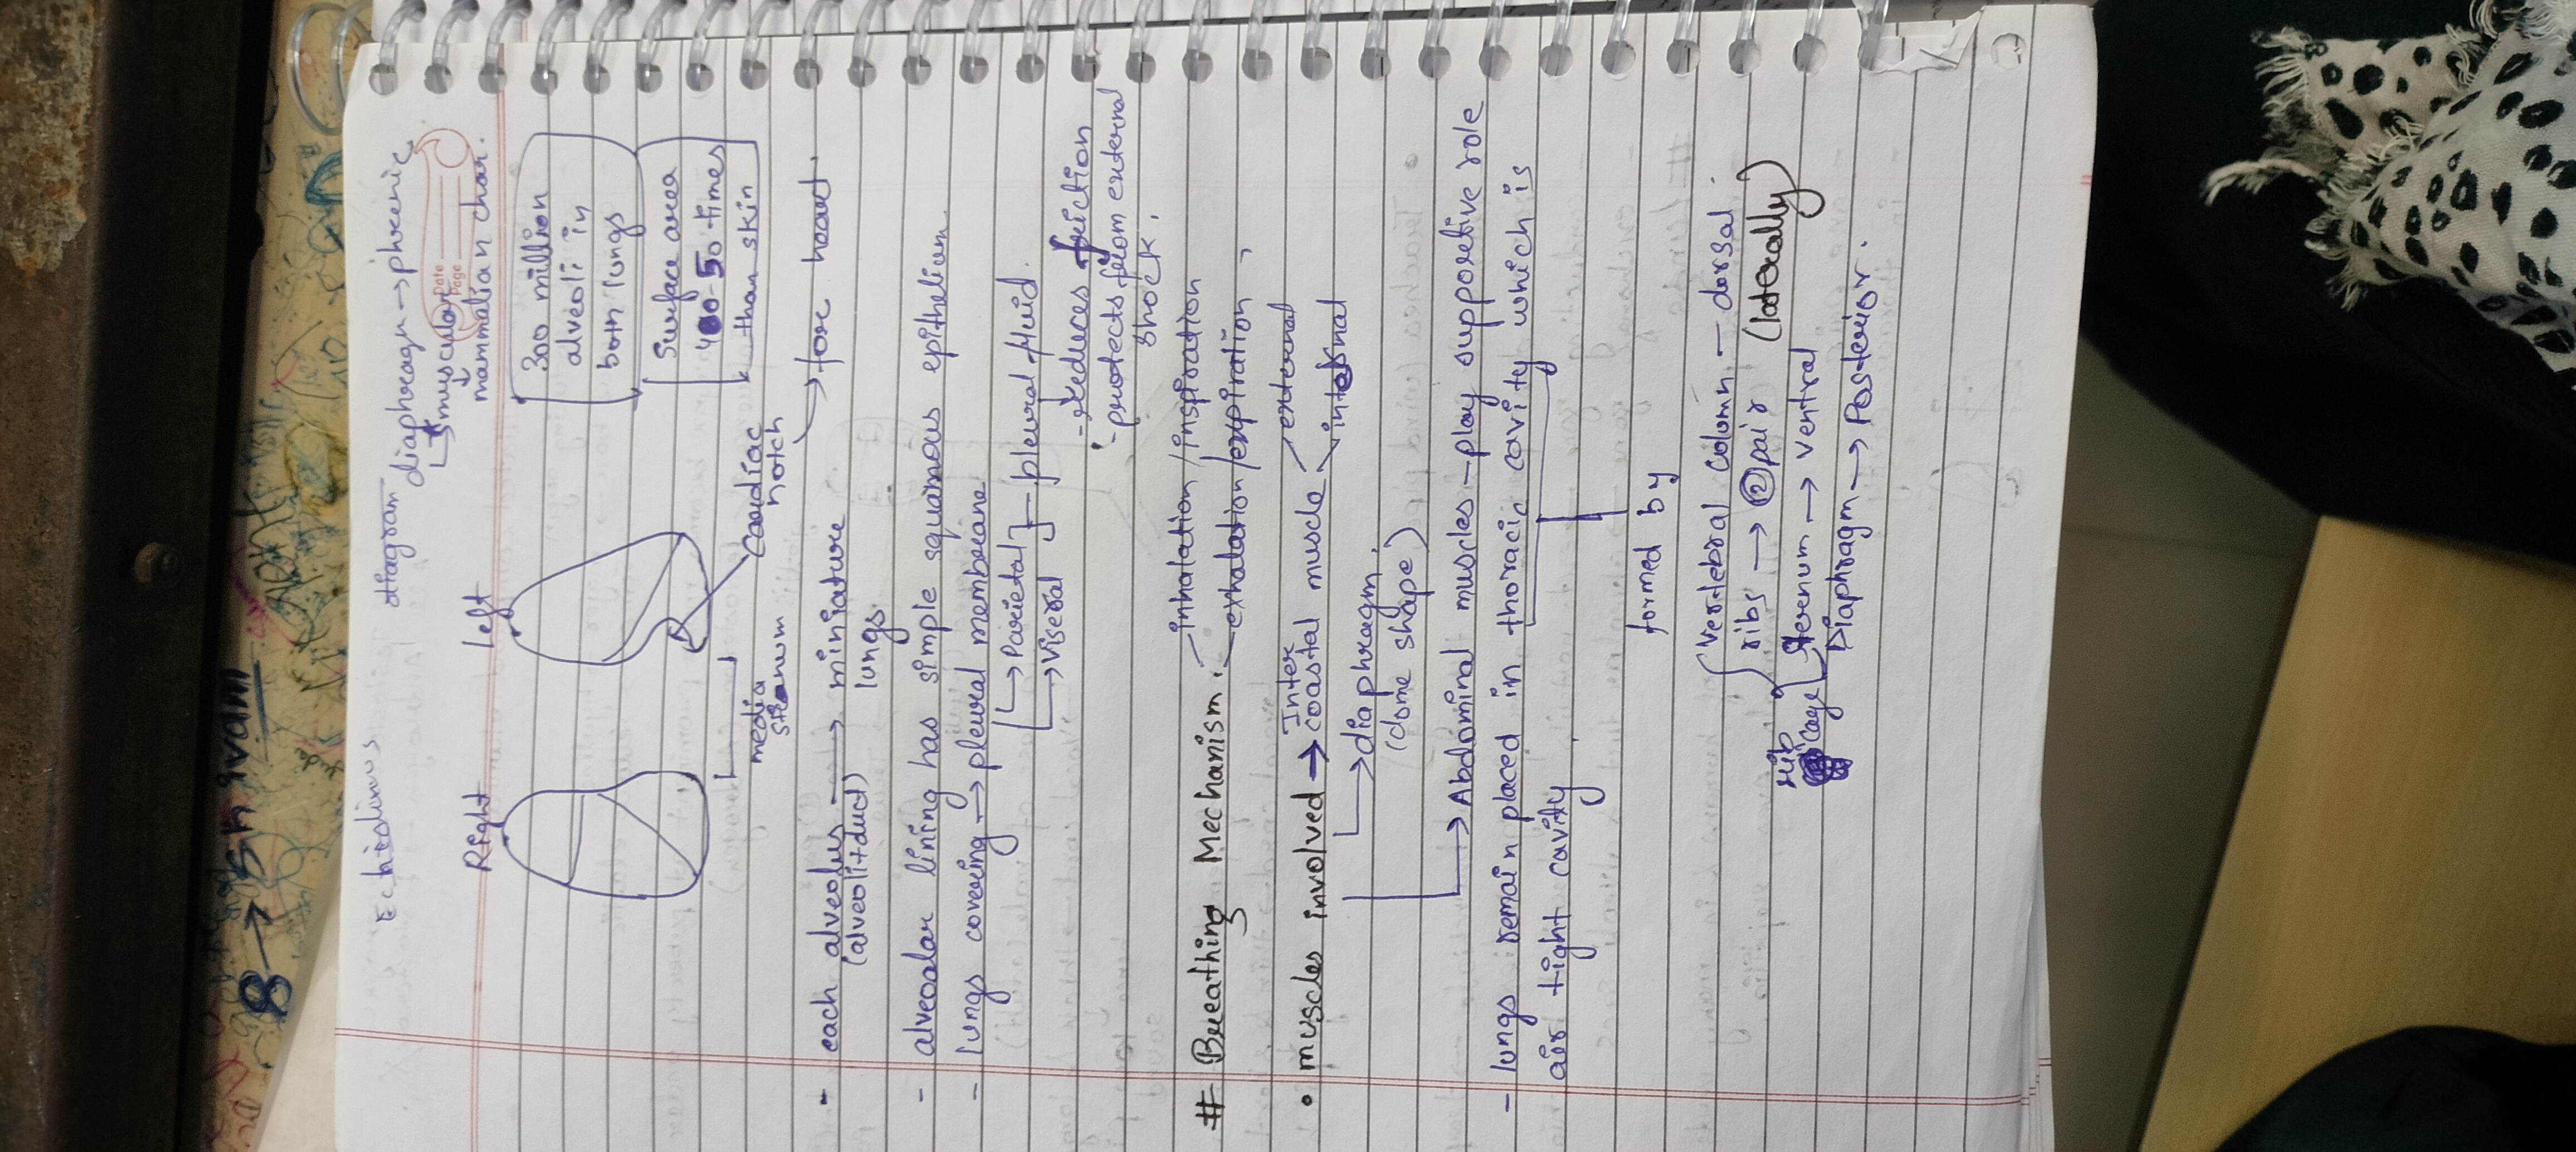 diagram
diaphragm → phrenic
muscular
Date
Page
mammalian char.
Right
Left
300 million
alveoli in
both lungs
Surface area
40-50 times
than skin
Cardiac
notch
media
stenum
→ for heart.
- each alveolus → miniature
(alveoli+duct) lungs.
- alveoalar lining has simple squamous epithelium
- lungs covering → pleural membrane
→ Parietal ] - pleural fluid.
→ Viseral
- Reduces friction
- protects from external
shock.
# Breathing Mechanism. - inhalation/inspiration
- exhalation/expiration,
• muscles involved → Inter
coastal muscle - external
- internal
→ diaphragm.
(dome shape)
→ Abdominal muscles - play supportive role
- lungs remain placed in thoracic cavity which is
air tight cavity
formed by
Vertebral column - dorsal.
ribs → 12 pair (laterally)
rib
cage
Sternum → ventral
Diaphragm → Posterior.
8 → Sh ivam